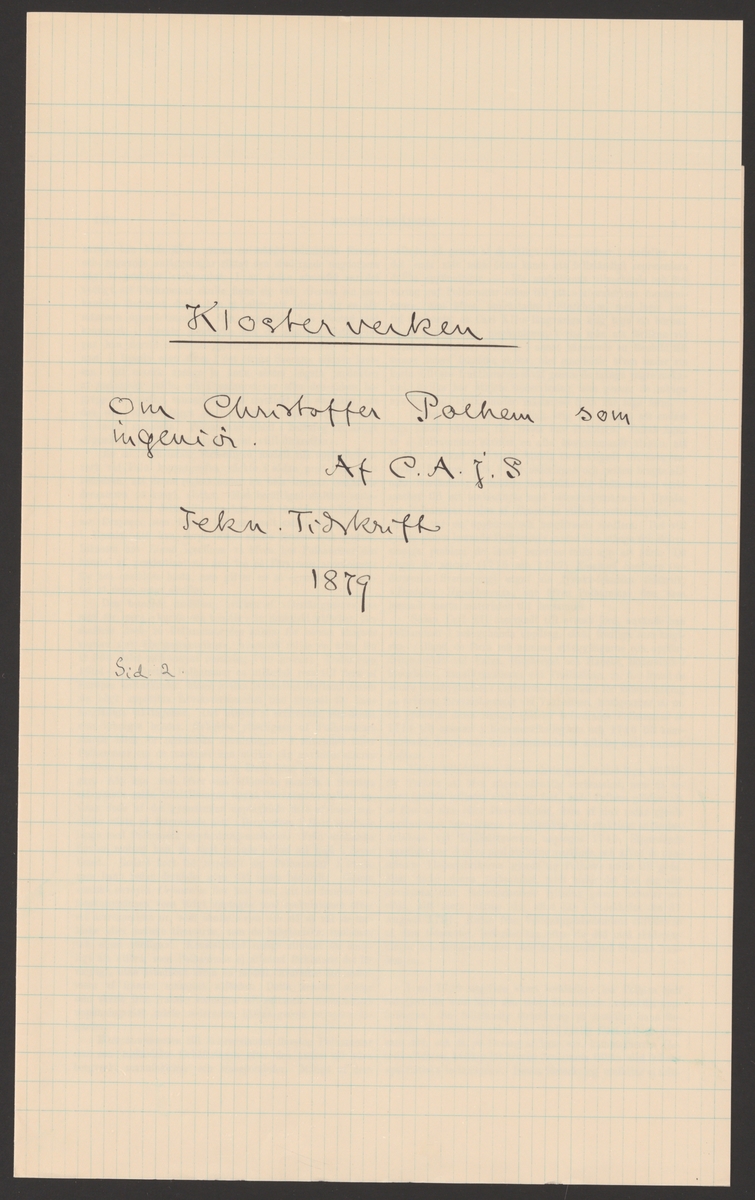 Klosterverken
Om Christoffer Polhem som
ingeniör.
Af C. A. J. S
Tekn. Tidskrift
1879
Sid 2.